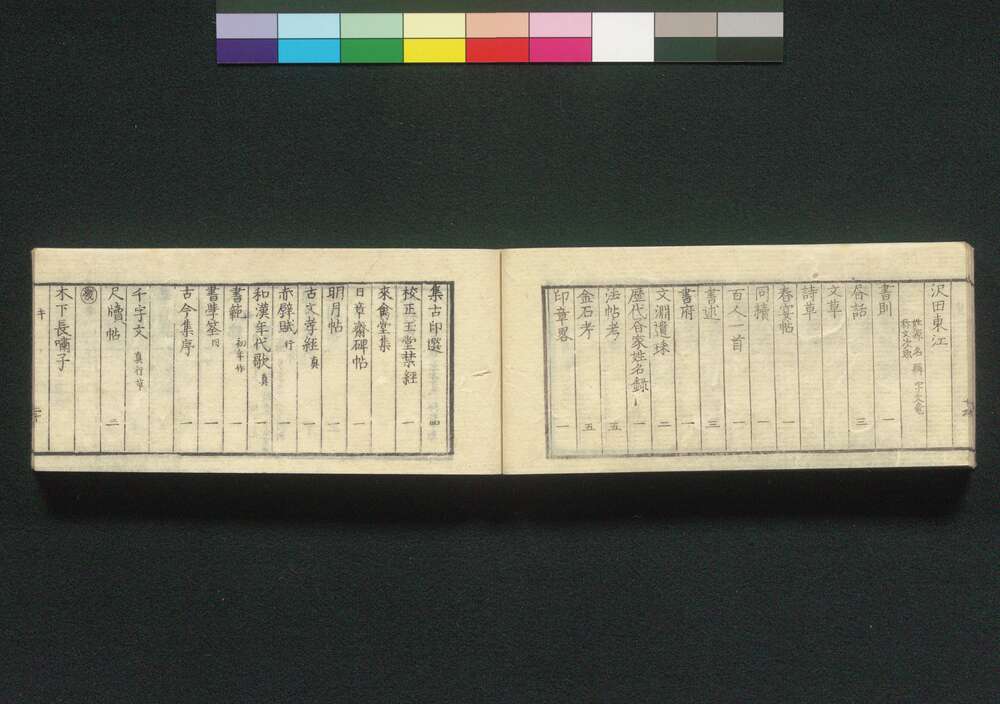 沢田東江
姓源 名鱗 字文竜
称文次郎
書則 一
昏話 三
文草
詩草
春宴帖 一
同續 一
百人一首 一
書述 三
書府 一
文淵遺珠 二
歴代各家姓名録 一
法帖考 五
金石考 五
印章畧 一
集古印選 四
校正玉堂禁経 一
來禽堂集
日章齋碑帖 一
明月帖 一
古文孝経 真 一
赤壁賦 行 一
和漢年代歌 真 一
書範 初年作 一
書學筌 同 一
古今集序 一
千字文 真行草
尺牘帖 二
木下長嘯子
キ